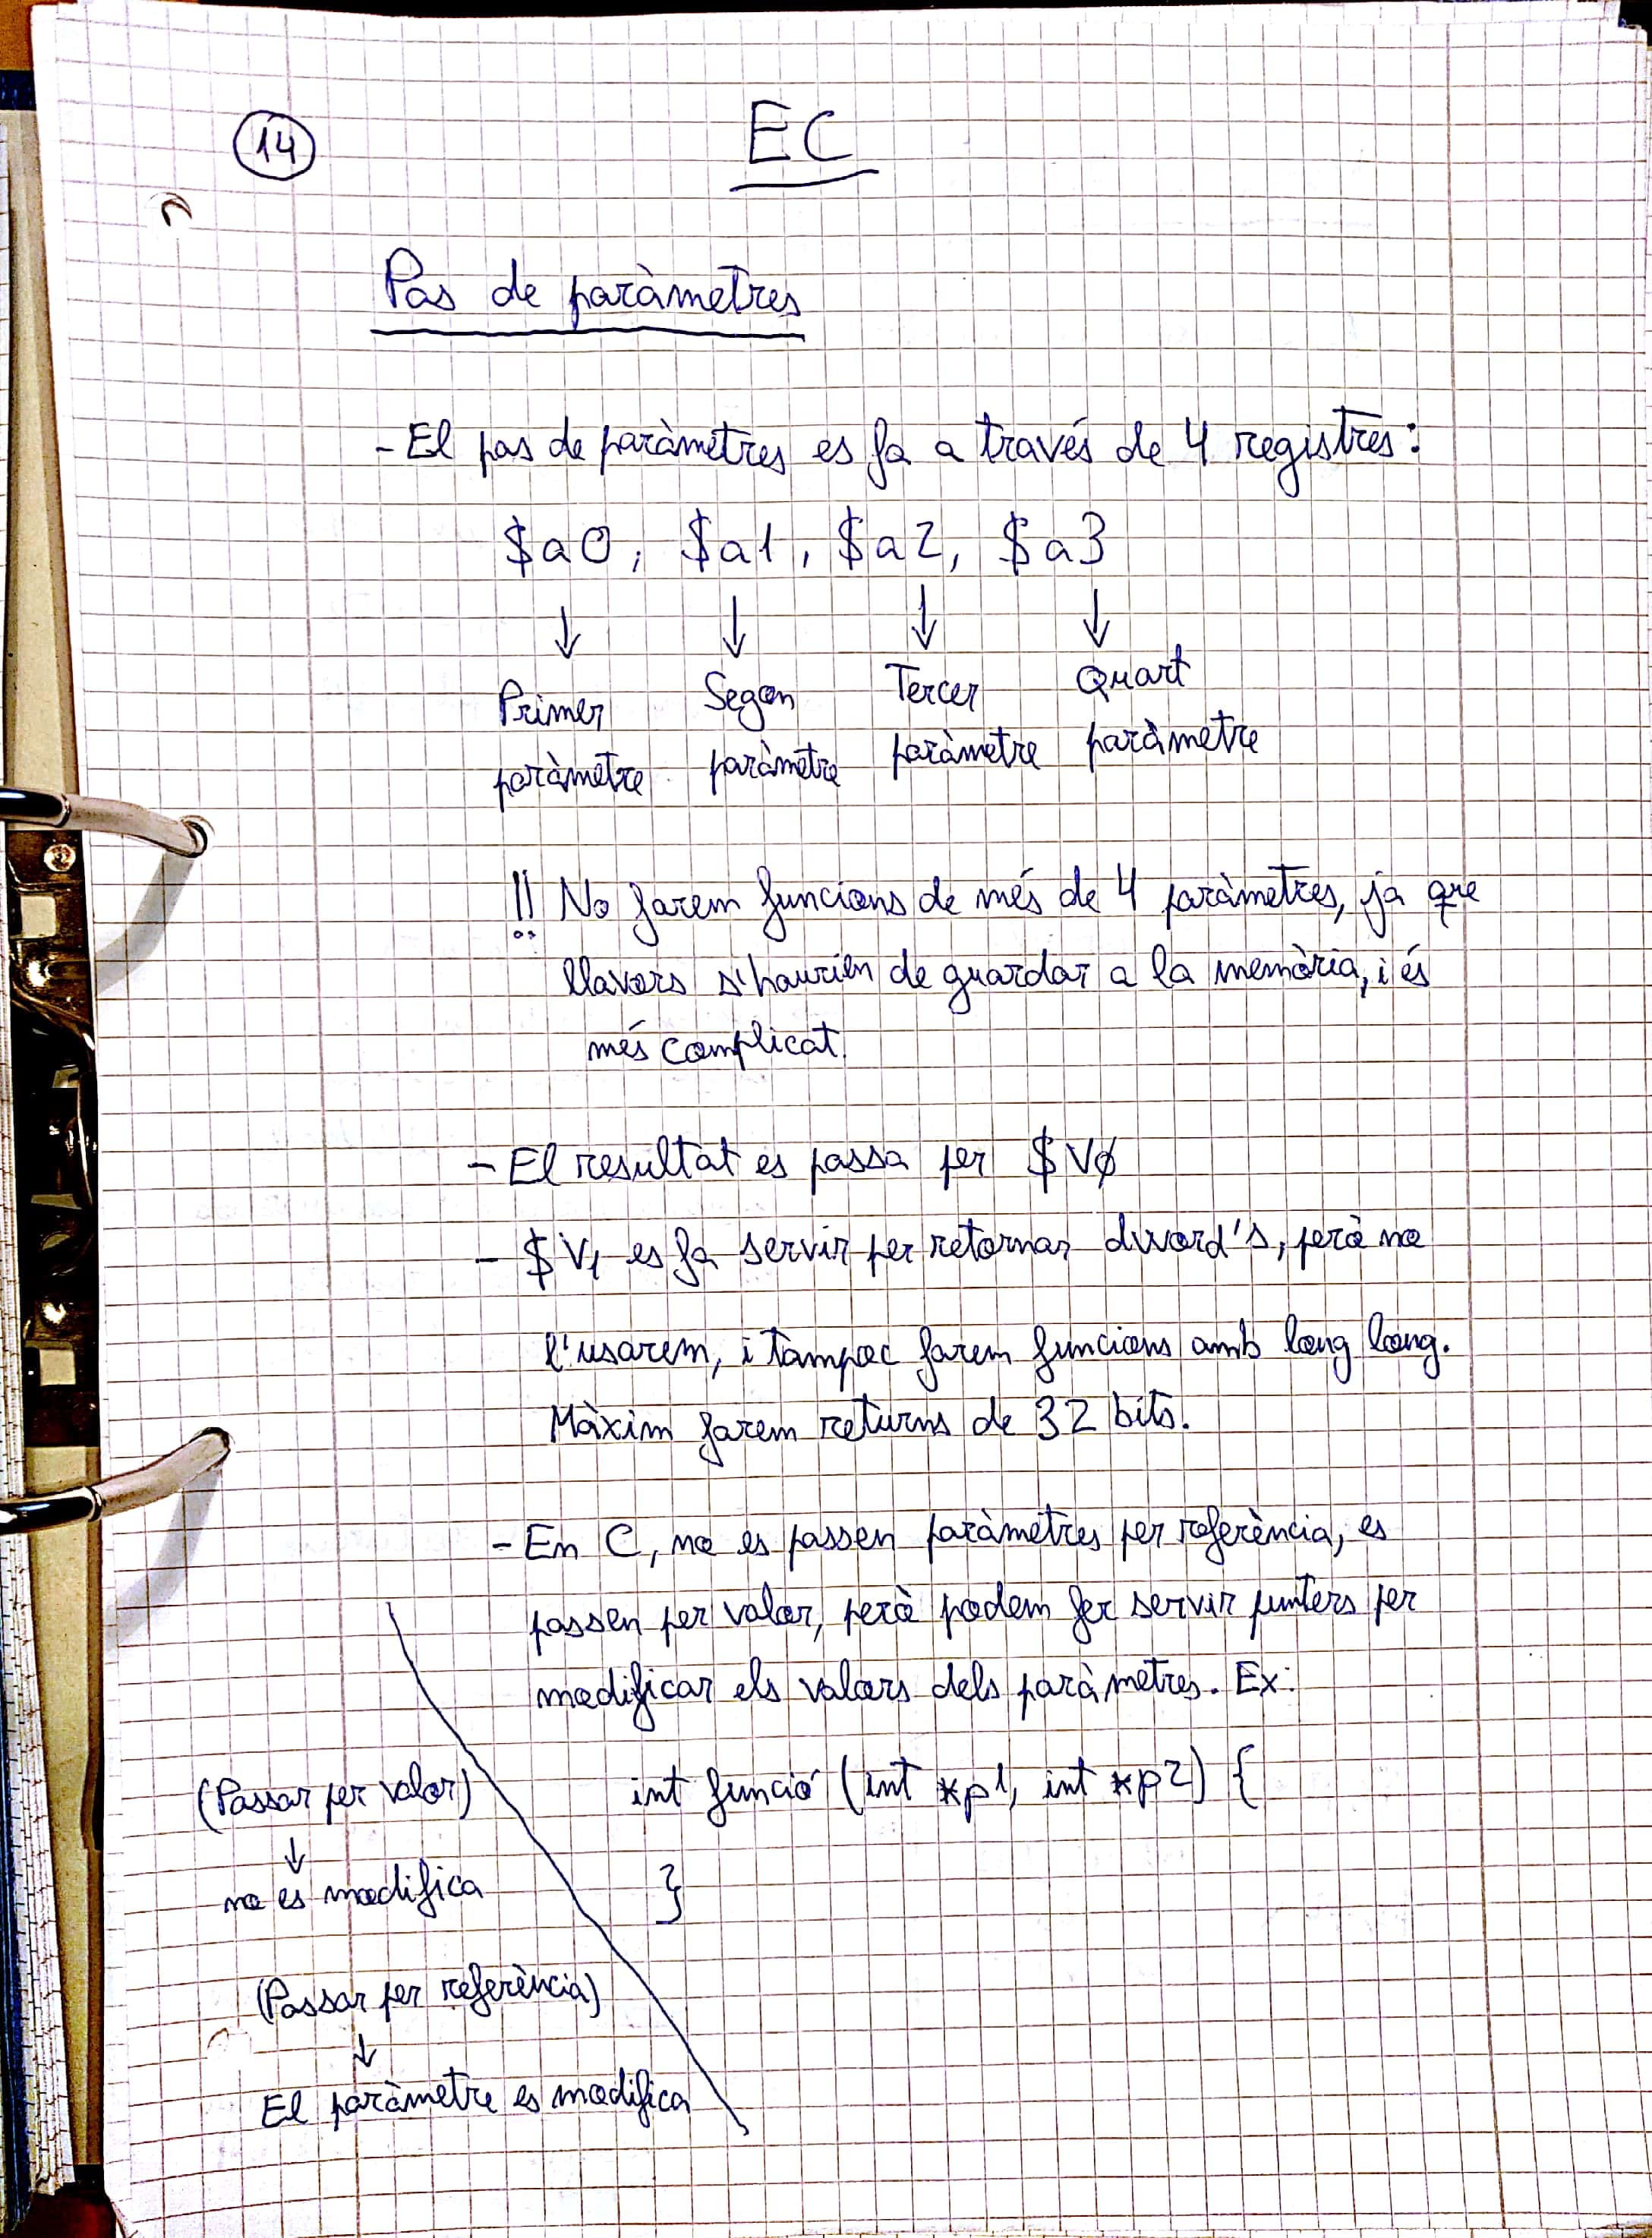 14
EC
Pas de paràmetres
- El pas de paràmetres es fa a través de 4 registres:
$a0, $a1, $a2, $a3
↓ ↓ ↓ ↓
Primer Segon Tercer Quart
paràmetre paràmetre paràmetre paràmetre
!! No farem funcions de més de 4 paràmetres, ja que
llavors s'haurien de guardar a la memòria, i és
més complicat.
- El resultat es passa per $V0
- $V1 es fa servir per retornar dword's, però no
l'usarem, i tampoc farem funcions amb long long.
Màxim farem returns de 32 bits.
- En C, no es passen paràmetres per referència, es
passen per valor, però podem fer servir punters per
modificar els valors dels paràmetres. Ex:
int funció (int *p1, int *p2) {
}
(Passar per valor)
↓
no es modifica
(Passar per referència)
↓
El paràmetre es modifica